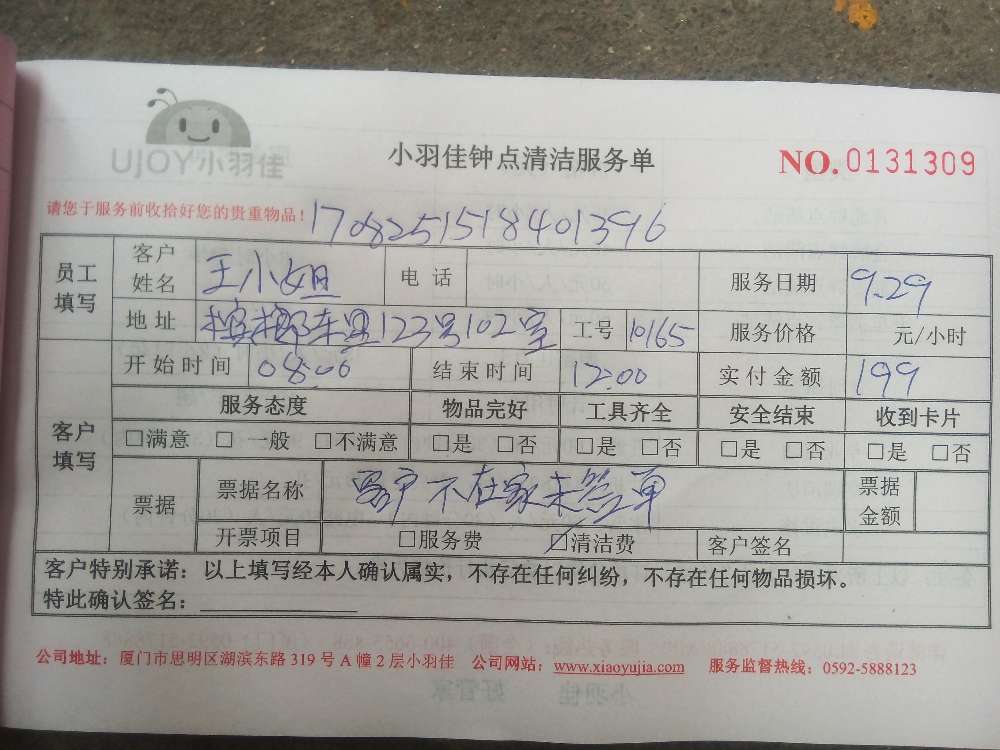 UJOY小羽佳
小羽佳钟点清洁服务单
NO.0131309
请您于服务前收拾好您的贵重物品！
1708251518401396
员工填写 客户姓名 王小姐 电话 服务日期 9.29
地址 槟榔东里123号102室 工号 10165 服务价格 元/小时
客户填写 开始时间 08:00 结束时间 12:00 实付金额 199
服务态度 物品完好 工具齐全 安全结束 收到卡片
□满意 □一般 □不满意 □是 □否 □是 □否 □是 □否 □是 □否
票据 票据名称 客户不在家未签单 票据金额
开票项目 □服务费 ☑清洁费 客户签名
客户特别承诺：以上填写经本人确认属实，不存在任何纠纷，不存在任何物品损坏。
特此确认签名：
公司地址：厦门市思明区湖滨东路319号A幢2层小羽佳 公司网站：www.xiaoyujia.com 服务监督热线：0592-5888123